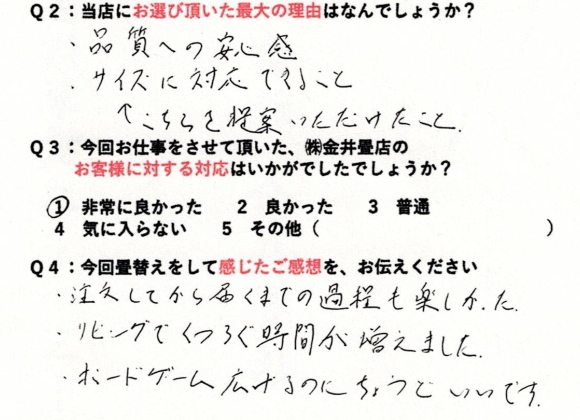 Q2：当店にお選び頂いた最大の理由はなんでしょうか？
・品質への安心感
・サイズに対応できること
↑こちらを提案いただけたこと.
Q3：今回お仕事をさせて頂いた、㈱金井畳店の
お客様に対する対応はいかがでしたでしょうか？
① 非常に良かった　2 良かった　3 普通
4 気に入らない　5 その他（　　　　　　　　）
Q4：今回畳替えをして感じたご感想を、お伝えください
・注文してから届くまでの過程も楽しかった.
・リビングでくつろぐ時間が増えました.
・ボードゲーム広げるのにちょうどいいです.